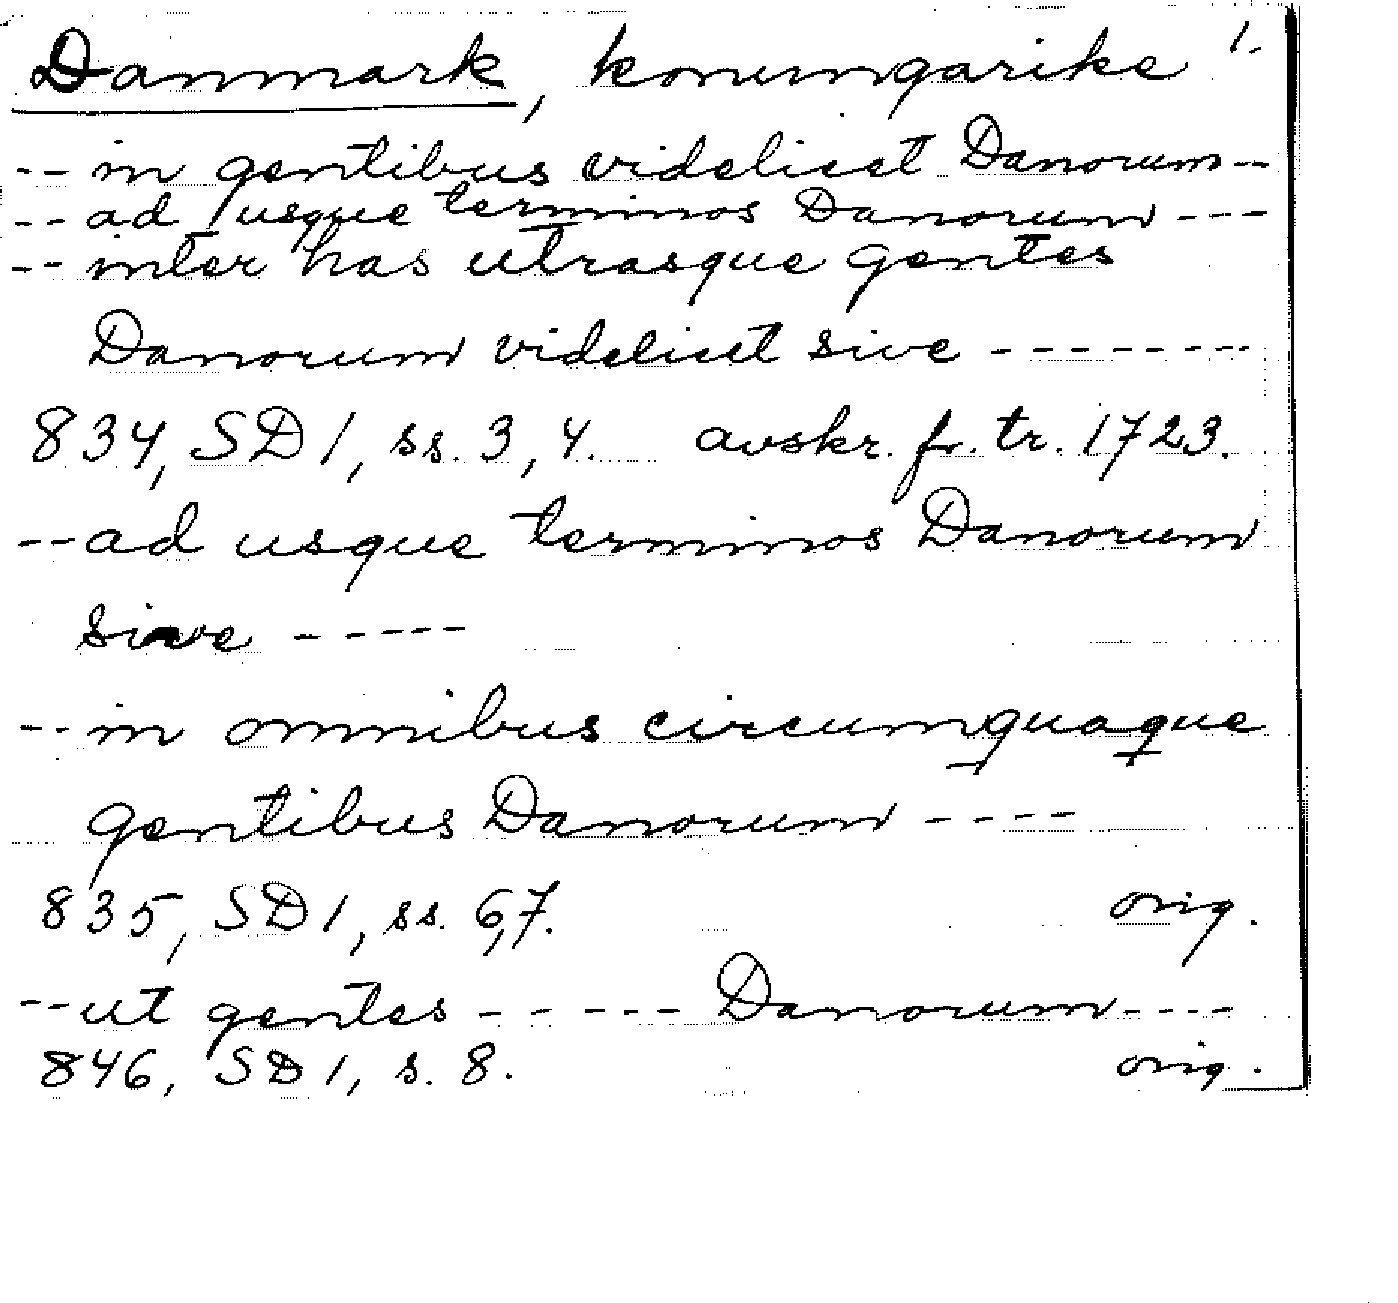 Danmark, konungarike 1.
-- in gentibus videlicet Danorum --
-- ad usque terminos Danorum ---
-- inter has utrasque gentes
Danorum videlicet sive --------
834, SD 1, ss. 3, 4. avskr. fr. tr. 1723.
-- ad usque terminos Danorum
sive -----
-- in omnibus circumquaque
gentibus Danorum ----
835, SD 1, ss. 6,7. orig.
-- ut gentes ----- Danorum ----
846, SD 1, s. 8. orig.